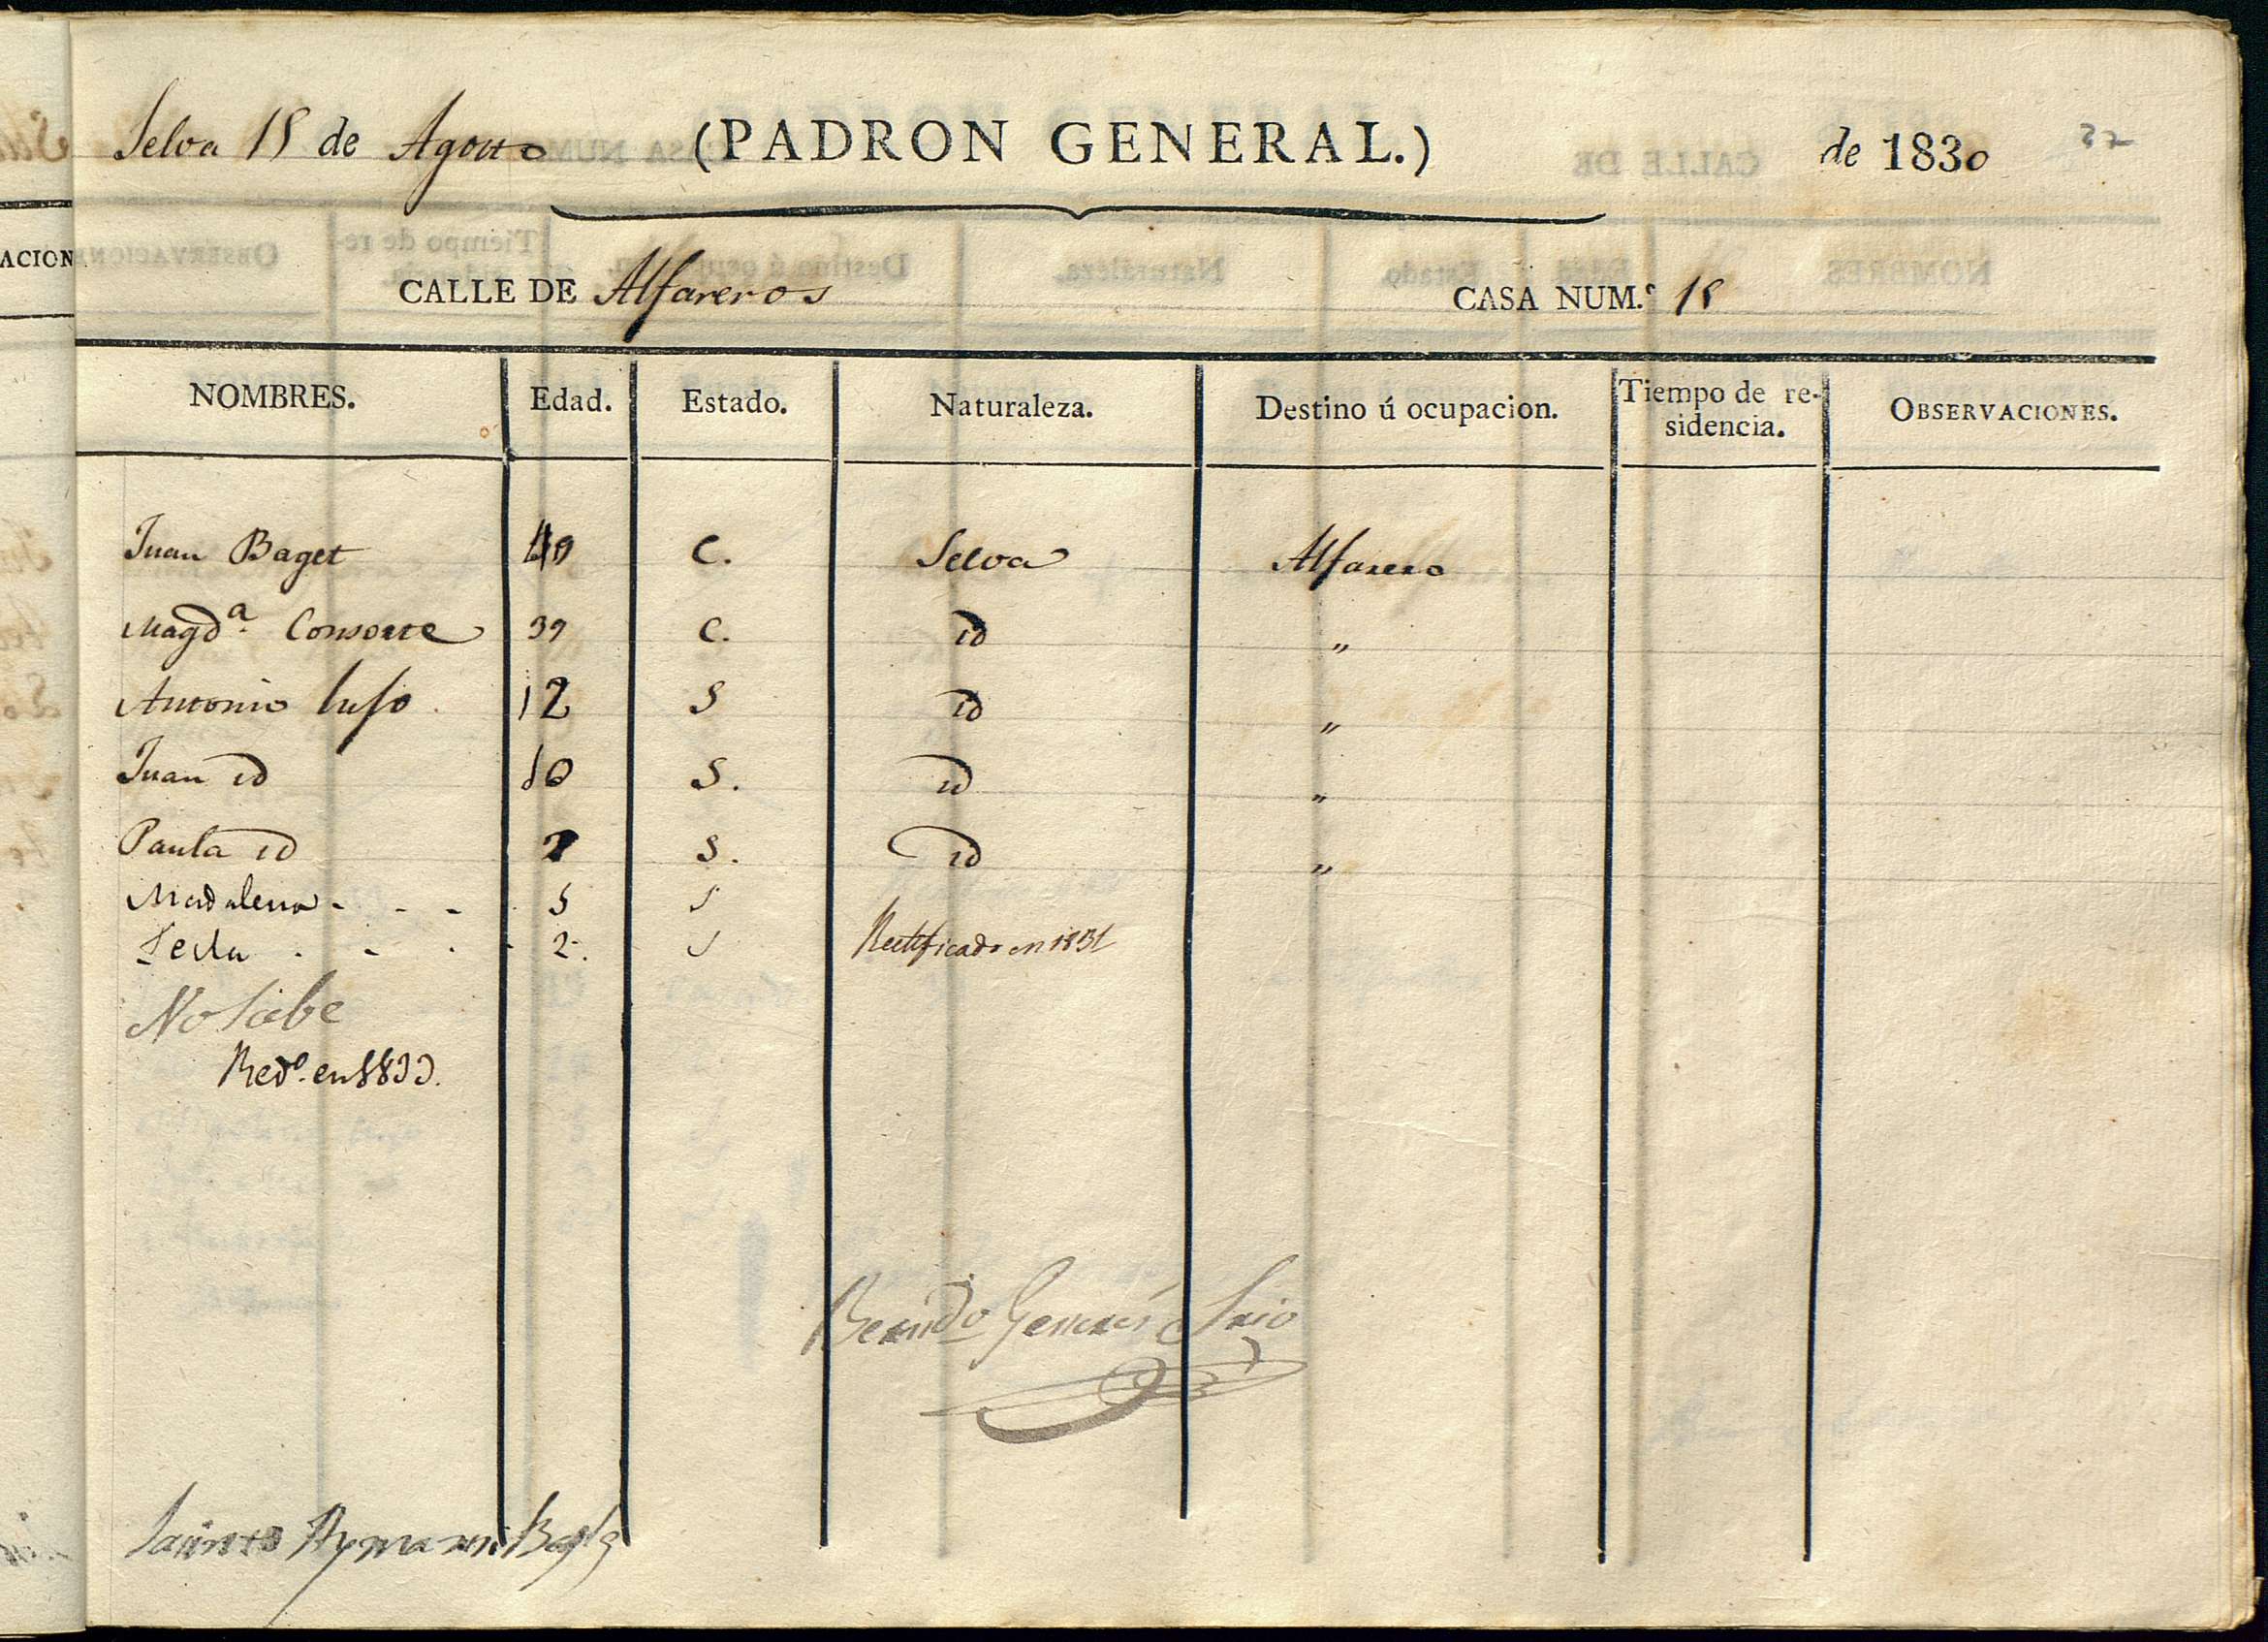 Selva 15 de Agosto (PADRON GENERAL.) de 1830 37
CALLE DE Alfareros CASA NUM.º 15
ACION
NOMBRES. Edad. Estado. Naturaleza. Destino ú ocupacion. Tiempo de re- OBSERVACIONES.
sidencia.
Juan Baget 40 C. Selva Alfarero
Magd.ª Consorte 39 C. id "
Antonio hijo 12 S id "
Juan id 10 S. id "
Paula id 7 S. id "
Madalena - - - 5 S
Tecla . - . - 2. S Rectificado en 1831
No sabe
Red.º en 1833.
Berndo Srio
Aymami Bayle